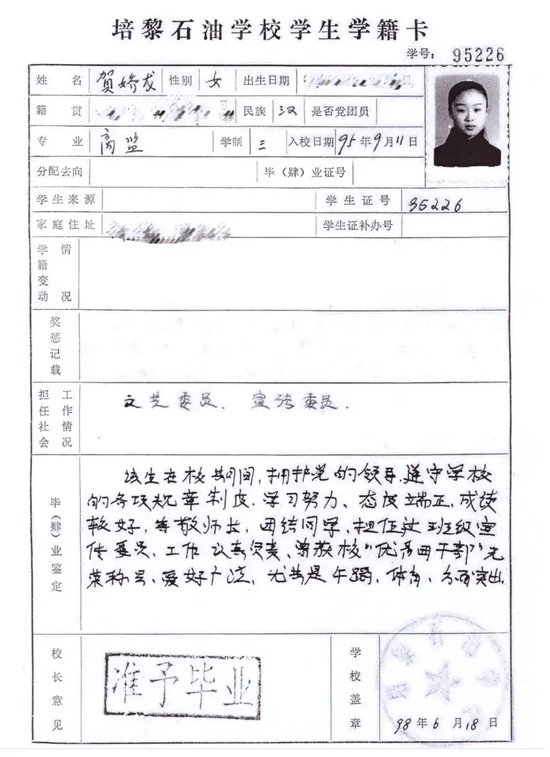 培黎石油学校学生学籍卡
学号: 95226
姓名 贺娇龙 性别 女 出生日期
籍贯 民族 汉 是否党团员
专业 商监 学制 三 入校日期 95年9月11日
分配去向 毕(肄)业证号
学生来源 学生证号 95226
家庭住址 学生证补办号
学籍变动情况
奖惩记载
担任社会工作情况 文艺委员、宣传委员.
毕(肄)业鉴定
该生在校期间,拥护党的领导,遵守学校
的各项规章制度.学习努力、态度端正,成绩
较好,尊敬师长,团结同学,担任过班级宣
传委员,工作认真负责,曾获校“优秀团干部”光
荣称号,爱好广泛,尤其是午蹈,体育,方面突出
校长意见 准予毕业 学校盖章
98年6月18日